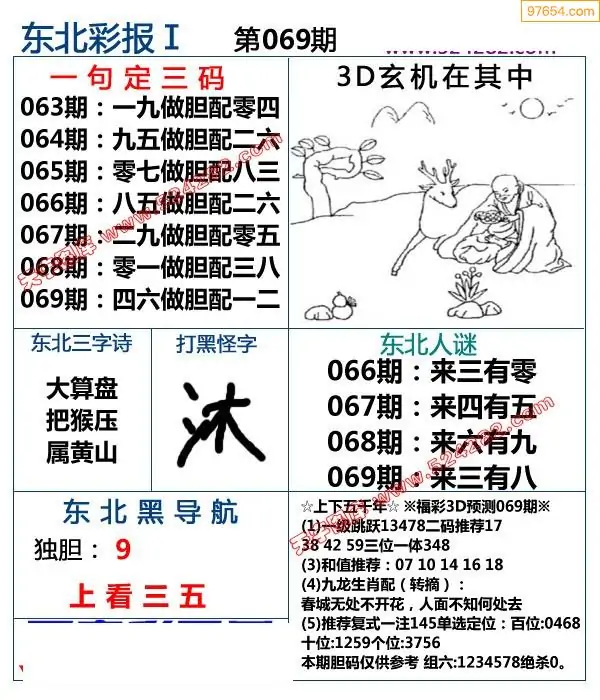 97654.com
东北彩报 I 第069期
一句定三码
063期：一九做胆配零四
064期：九五做胆配二六
065期：零七做胆配八三
066期：八五做胆配二六
067期：二九做胆配零五
068期：零一做胆配三八
069期：四六做胆配一二
3D玄机在其中
东北三字诗
大算盘
把猴压
属黄山
打黑怪字
东北人谜
066期：来三有零
067期：来四有五
068期：来六有九
069期：来三有八
东北黑导航
独胆：9
上看三五
☆上下五千年☆ ※福彩3D预测069期※
(1)一级跳跃13478二码推荐17
38 42 59三位一体348
(3)和值推荐：07 10 14 16 18
(4)九龙生肖配（转摘）：
春城无处不开花，人面不知何处去
(5)推荐复式一注145单选定位：百位:0468
十位:1259个位:3756
本期胆码仅供参考 组六:1234578绝杀0。